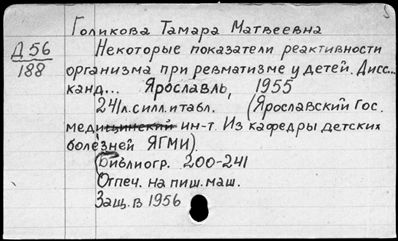 Голикова Тамара Матвеевна
Д 56
188
Некоторые показатели реактивности
организма при ревматизме у детей. Дисс...
канд... Ярославль, 1955
241л.силл.итабл. (Ярославский Гос.
медицинский ин-т. Из кафедры детских
болезней ЯГМИ).
(Библиогр. 200-241
Отпеч. на пиш. маш.
Защ. в 1956